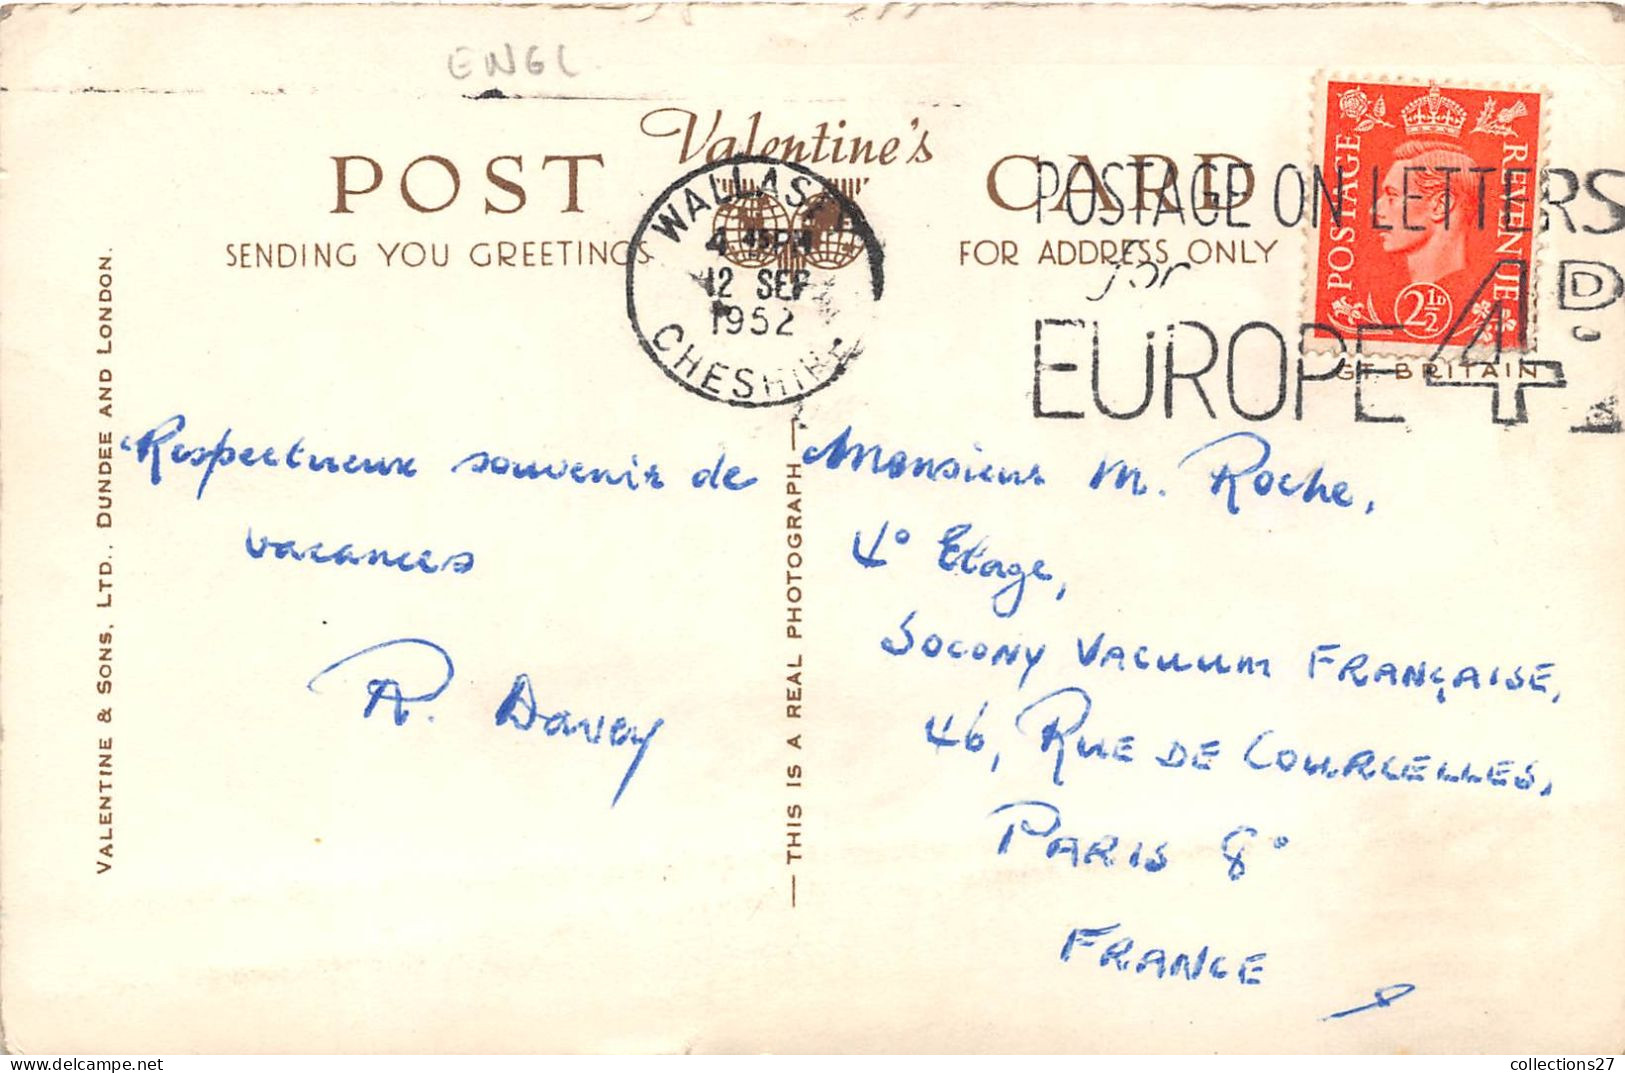 ENGL
Valentine's
POST CARD
SENDING YOU GREETINGS
FOR ADDRESS ONLY
WALLASEY
4 45 PM
12 SEP
1952
CHESHIRE
POSTAGE ON LETTERS
for
EUROPE 4D.
POSTAGE REVENUE
2½D
GT BRITAIN
VALENTINE & SONS, LTD., DUNDEE AND LONDON.
THIS IS A REAL PHOTOGRAPH
Respectueux souvenir de
vacances
R. Davey
Monsieur M. Roche,
4° Etage,
Socony Vacuum Française,
46, Rue de Courcelles,
Paris 8°
France
collections27